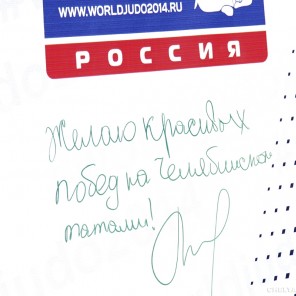 WWW.WORLDJUDO2014.RU
РОССИЯ
Желаю красивых
побед на Челябинском
татами!